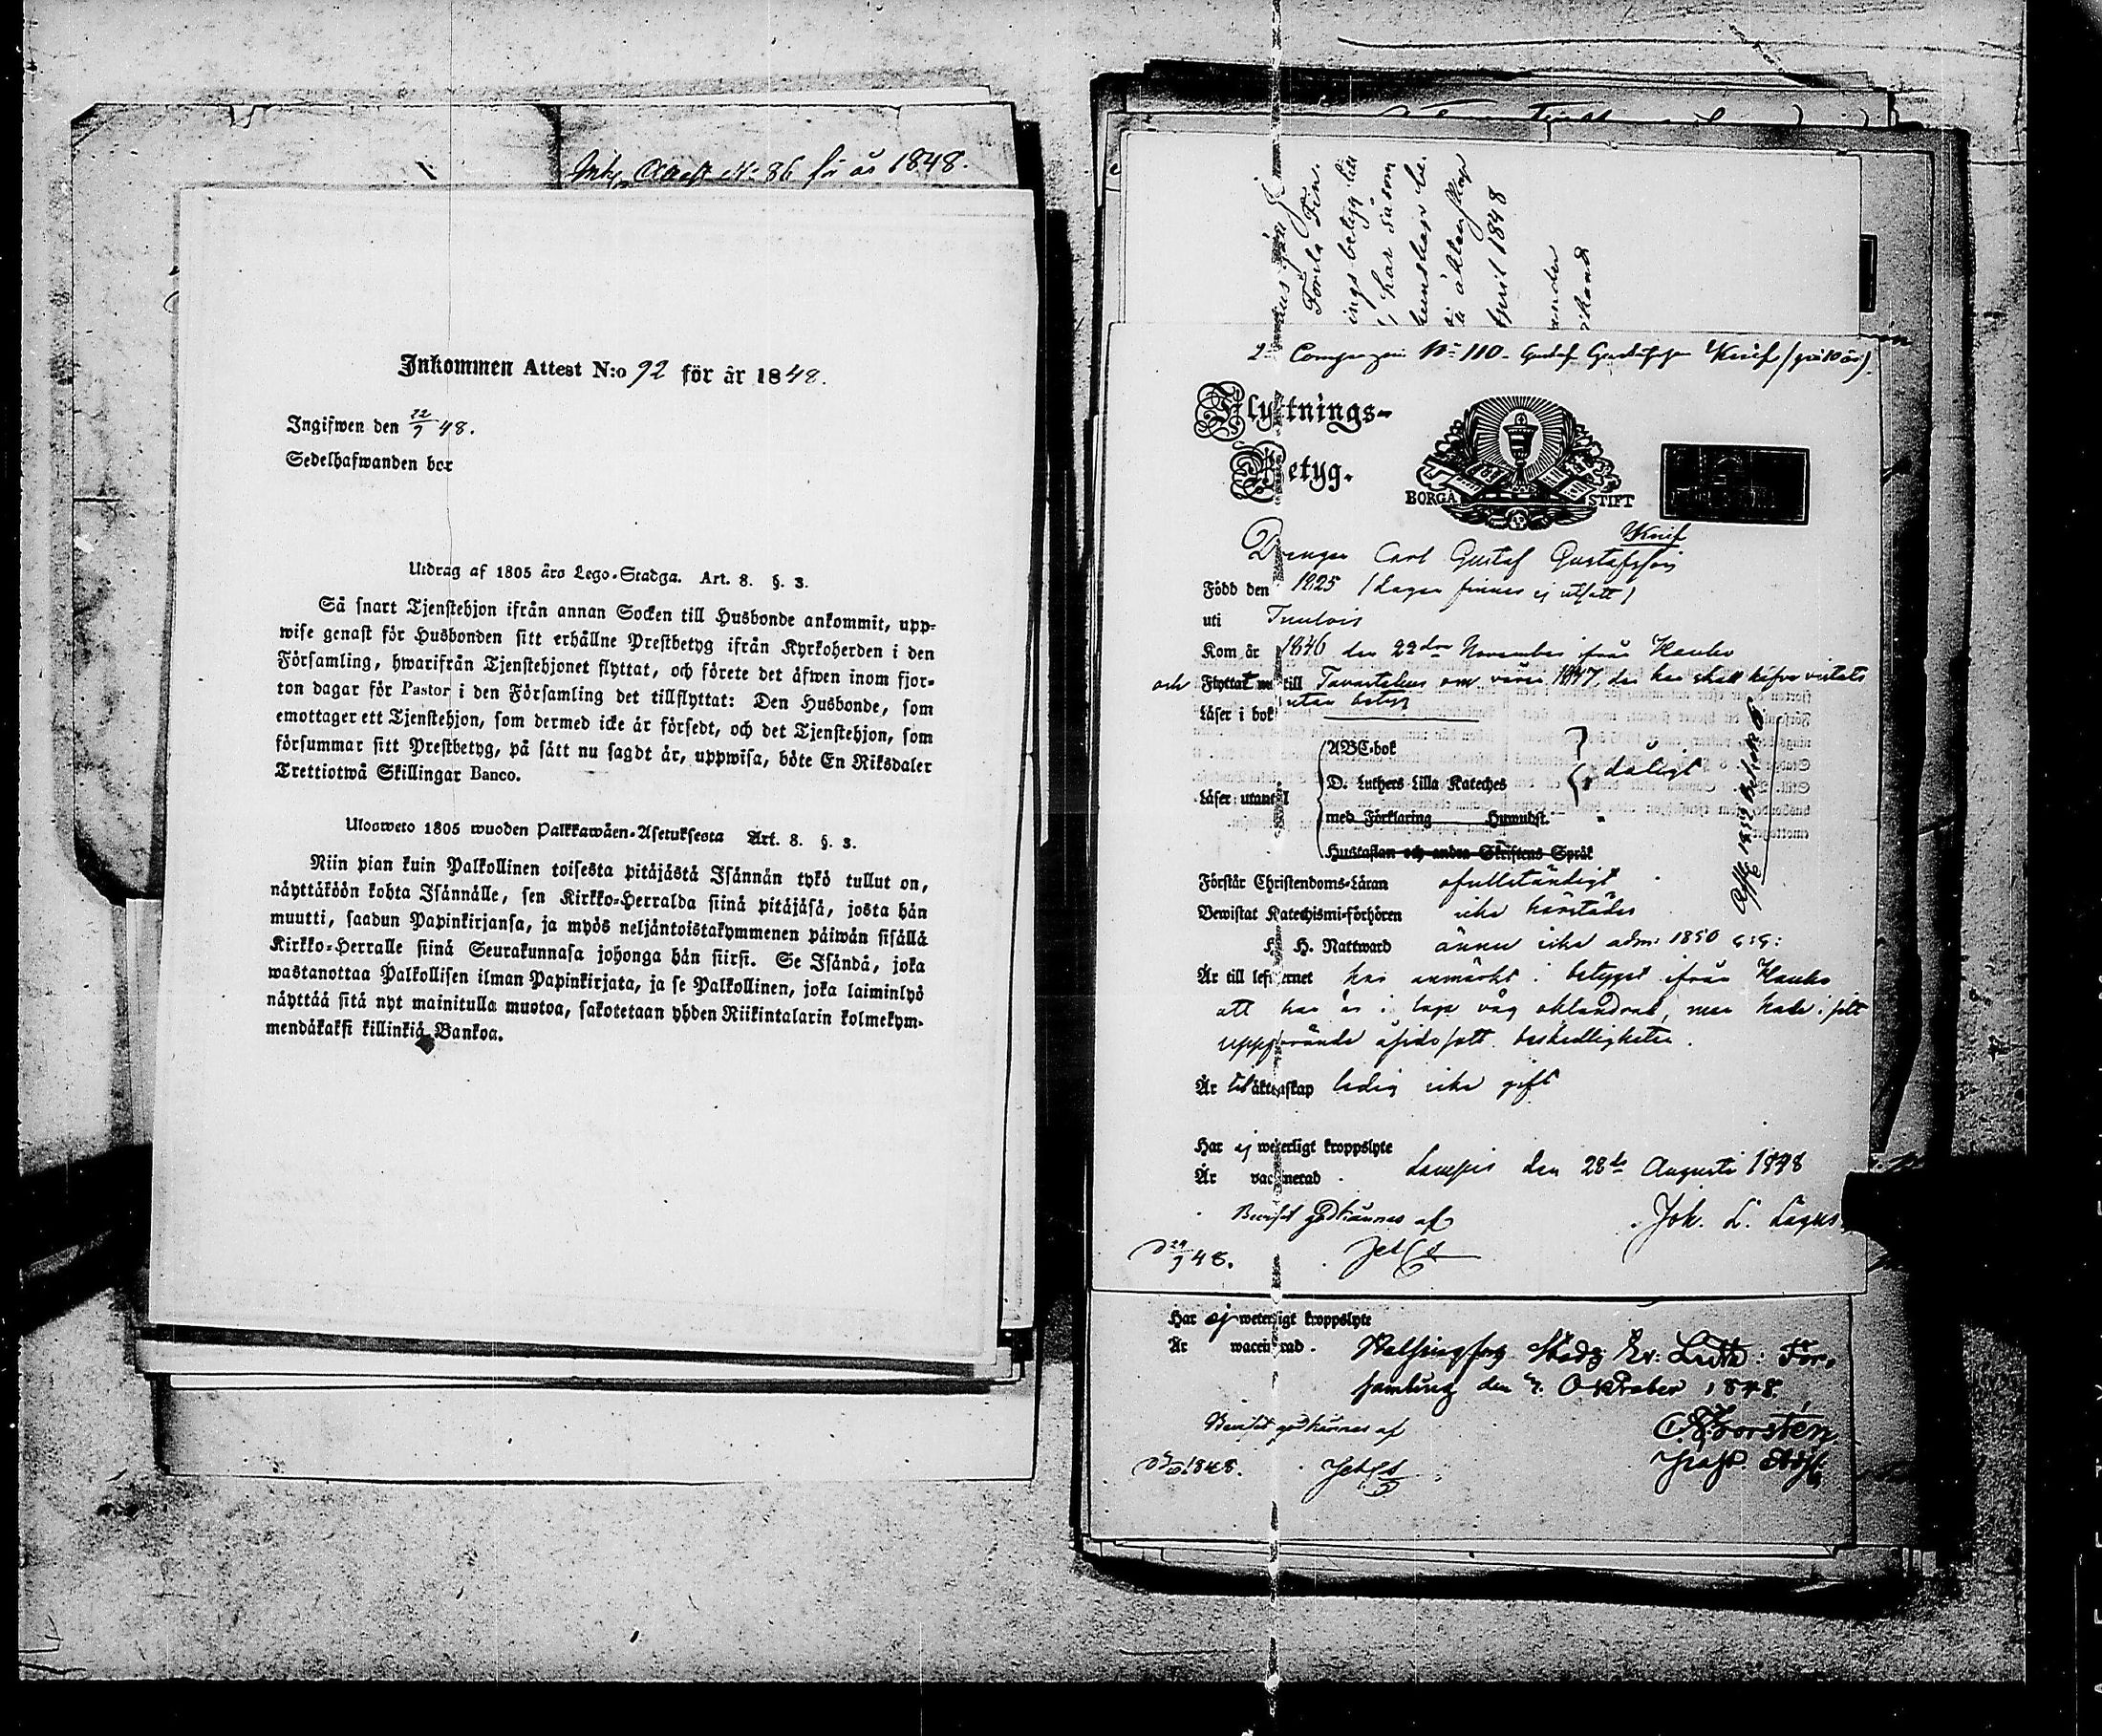 Attest No 86 för år 1848.
Inkommen Attest N:o 92 för år 1848.
Ingifwen den 22/9 48.
Sedelhafwanden bor
Utdrag af 1805 års Lego-Stadga. Art. 8. §. 3.
Så snart Tjenstehjon ifrån annan Socken till Husbonde ankommit, upp-
wise genast för Husbonden sitt erhållne Prestbetyg ifrån Kyrkoherden i den
Församling, hwarifrån Tjenstehjonet flyttat, och förete det äfwen inom fjor-
ton dagar för Pastor i den Församling det tillflyttat: Den Husbonde, som
emottager ett Tjenstehjon, som dermed icke är försedt, och det Tjenstehjon, som
försummar sitt Prestbetyg, på sätt nu sagdt är, uppwisa, böte En Riksdaler
Trettiotwå Skillingar Banco.
Ulosweto 1805 wuoden Palkkawäen-Asetuksesta Art. 8. §. 3.
Niin pian kuin Palkollinen toisesta pitäjästä Isännän tykö tullut on,
näyttäköön kohta Isännälle, sen Kirkko-Herralda siinä pitäjäsä, josta hän
muutti, saadun Papinkirjansa, ja myös neljäntoistakymmenen päiwän sisällä
Kirkko-Herralle siinä Seurakunnasa johonga hän siirsi. Se Isändä, joka
wastanottaa Palkollisen ilman Papinkirjata, ja se Palkollinen, joka laiminlyö
näyttää sitä nyt mainitulla muotoa, sakotetaan yhden Riikintalarin kolmekym-
mendäkaksi killinkiä Bankoa.
har såsom
April 1848
No 110 Gustaf Knif
Flyttnings-
Betyg.
BORGÅ STIFT
Knif
Drengen Carl Gustaf Gustafsson
Född den 1825 (dagen finnes ej utsatt)
uti Tuulois
Kom år 1846 den 22dra November ifrån Hauho
och Flyttat till Tavastehus om våren 1847, der han skall hafva vistats
utan betyg
Läser i bok
ABC-bok
D. Luthers Lilla Kateches dåligt
Läser utantill
med Förklaring Huwudst.
Hustaflan och andra Skriftens Språk
Förstår Christendoms-Läran ofullständigt
Bewistat Katechismi-förhören icke härstädes
H. H. Nattward ännu icke adm: 1850
Är till lefwernet har anmärkt i betyget ifrån Hauho
att han är i laga väg oklandrad, men hade i sitt
uppförande åsidosatt beskedligheten.
Är till äktenskap ledig icke gift
Har ej weterligt kroppslyte
Är vaccinerad. Lampis den 28de Augusti 1848
Beviset godkännes af Joh. L. Lagus
48.
Har ej weterligt kroppslyte
Är waccinerad. Helsingfors Stads Ev: Luth: För-
samling den 7. Oktober 1848
Beviset godkännes af Forstén
1848.